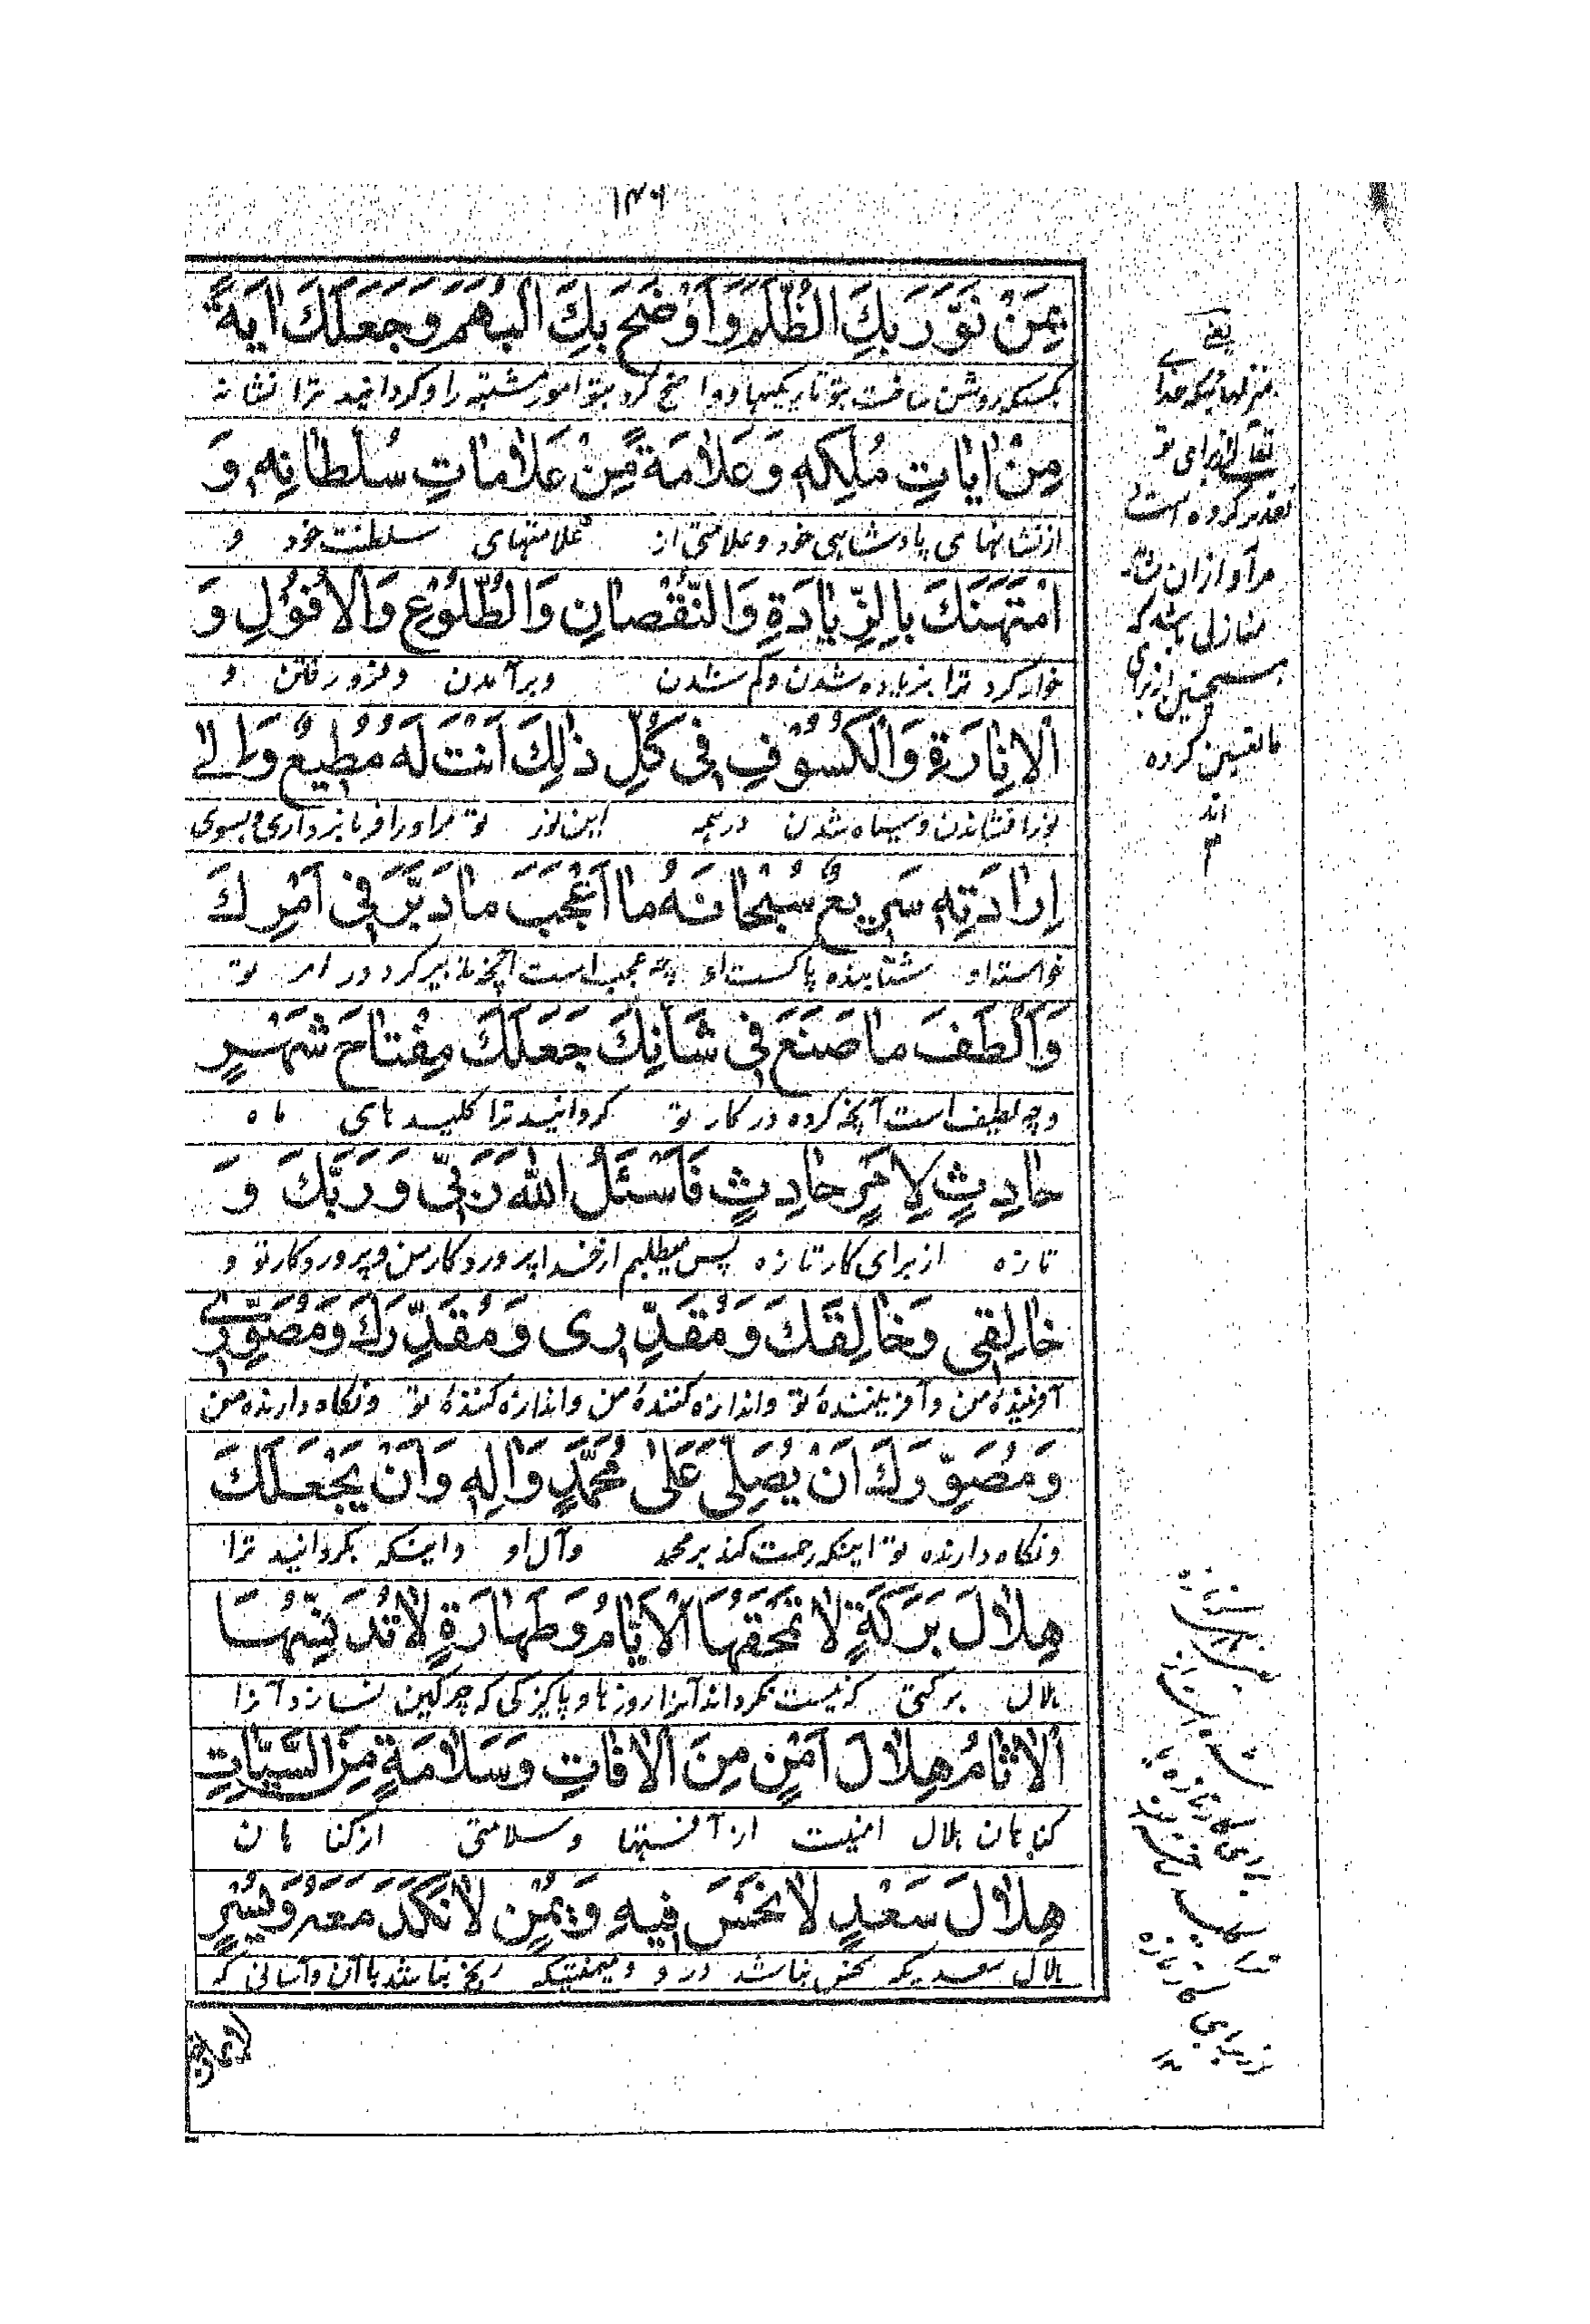 ۱۴۶
بِمَنْ نَوَّرَ بِكَ الظُّلَمَ وَاَوْضَحَ بِكَ الْبُهَمَ وَجَعَلَكَ اٰيَةً
بکسیکه روشن ساخت بتو تاریکیها و واضح کرد بتو امور مشتبه را و گردانید ترا نشانه
مِنْ اٰيٰاتِ مُلْكِهٖ وَعَلٰامَةً مِنْ عَلٰامٰاتِ سُلْطٰانِهٖ وَ
از نشانهای پادشاهی خود و علامتی از علامتهای سلطنت خود و
امْتَهَنَكَ بِالزِّيٰادَةِ وَالنُّقْصٰانِ وَالطُّلُوْعِ وَالْاُفُوْلِ وَ
خوار کرد ترا بزیاده شدن و کم شدن و برآمدن و فرو رفتن و
الْاِنٰارَةِ وَالْكُسُوْفِ فِىْ كُلِّ ذٰلِكَ اَنْتَ لَهُ مُطِيْعٌ وَاِلٰى
نور افشاندن و سیاه شدن در همه این نور تو مر او را فرمانبرداری و بسوی
اِرٰادَتِهٖ سَرِيْعٌ سُبْحٰانَهُ مٰا اَعْجَبَ مٰا دَبَّرَ فِىْ اَمْرِكَ
خواسته او شتابنده پاکست او چه عجب است آنچه تدبیر کرد در امر تو
وَاَلْطَفَ مٰا صَنَعَ فِىْ شَاْنِكَ جَعَلَكَ مِفْتٰاحَ شَهْرٍ
و چه لطیف است آنچه کرده در کار تو گردانید ترا کلید های ماه
حٰادِثٍ لِاَمْرٍ حٰادِثٍ فَاَسْئَلُ اللّٰهَ رَبِّىْ وَرَبَّكَ وَ
تازه از برای کار تازه پس میطلبم از خدا پروردکار من و پروردکار تو و
خٰالِقِىْ وَخٰالِقَكَ وَمُقَدِّرِى وَمُقَدِّرَكَ وَمُصَوِّرِىْ
آفرینندهٔ من و آفرینندهٔ تو و اندازه کنندهٔ من و اندازه کنندهٔ تو و نگاه دارندهٔ من
وَمُصَوِّرَكَ اَنْ يُصَلِّىَ عَلٰى مُحَمَّدٍ وَاٰلِهٖ وَاَنْ يَجْعَلَكَ
و نگاه دارنده تو اینکه رحمت کند بر محمد و آل او و اینکه بگردانید ترا
هِلٰالَ بَرَكَةٍ لٰا تَمْحَقُهَا الْاَيّٰامُ وَطَهٰارَةٍ لٰا تُدَنِّسُهَا
هلال برکتی که نیست نگرداند آنرا روزها و پاکیزگی که چرکین نسازد آنرا
الْاٰثٰامُ هِلٰالَ اَمْنٍ مِنَ الْاٰفٰاتِ وَسَلٰامَةٍ مِنَ السَّيِّئٰاتِ
کناهان هلال امنیت از آفتها و سلامتی از کناهان
هِلٰالَ سَعْدٍ لٰا نَحْسَ فِيْهِ وَيُمْنٍ لٰا نَكَدَ مَعَهُ وَيُسْرٍ
هلال سعدیکه نحس نباشد در و و میمنتیکه رنج نباشد با آن و آسانی که
یعنی
منزلهائیکه خدای
تعالی از برای تو
تقدیر کرده است
مراد از ان
منازل باشد که
منجمین از برای
ماه تعیین کرده
اند